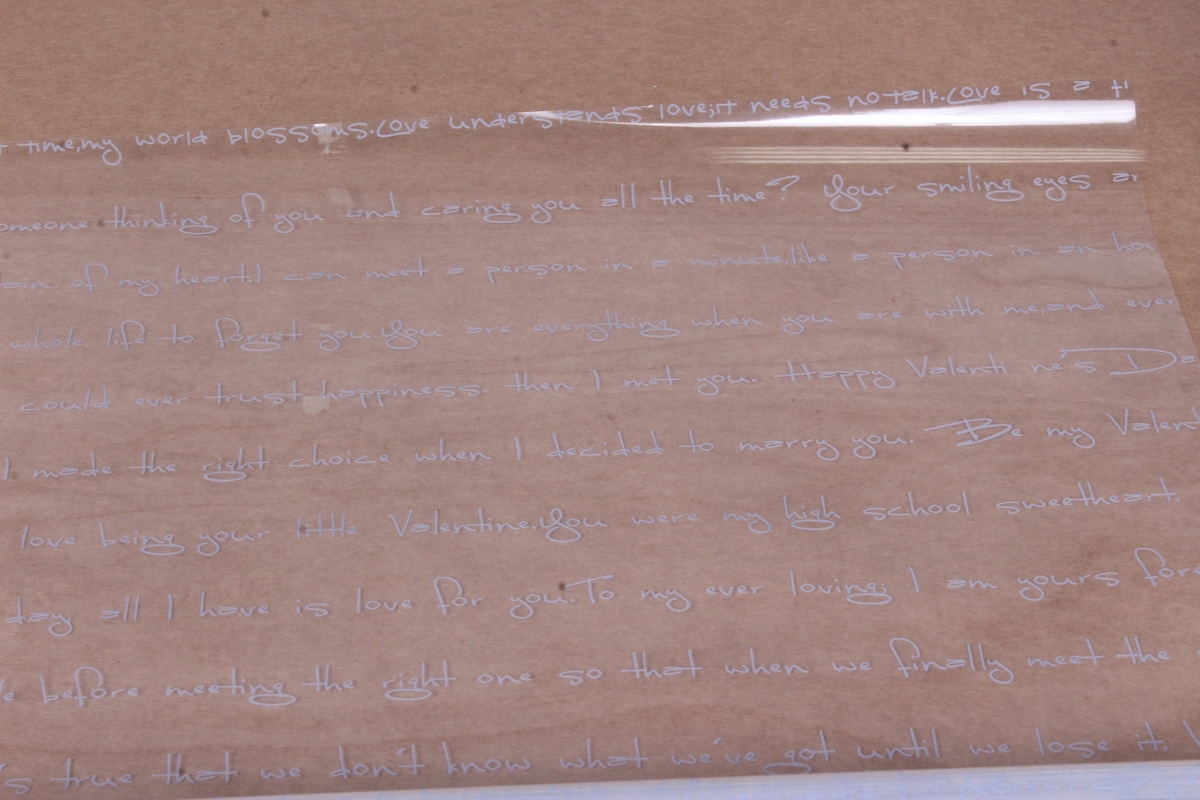 time,my world blossoms.Love understands love;it needs no talk.Love is a
thinking of you and caring you all the time? Your smiling eyes
of my heart.I can meet a person in a minute,like a person in an
whole life to forget you.You are everything when you are with me,and
could ever trust happiness. then I met you. Happy Valenti ne's
I made the right choice when I decided to marry you. Be my
love being your little Valentine.You were my high school sweetheart,
day all I have is love for you.To my ever loving; I am yours
before meeting the right one so that when we finally meet the
true that we don't know what we've got until we lose it,